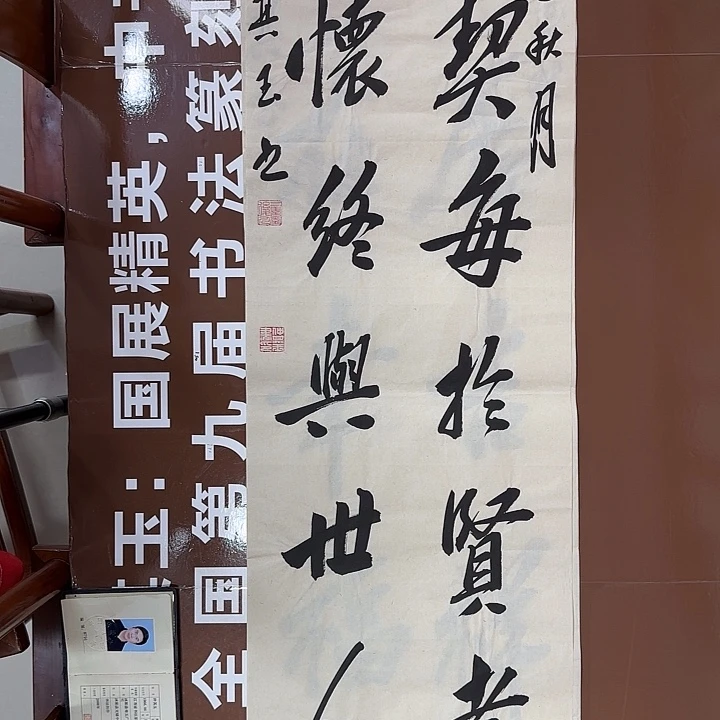 秋月
契每於賢
懷終與世
其玉书
玉：国展精英，中
全国第九届书法篆刻